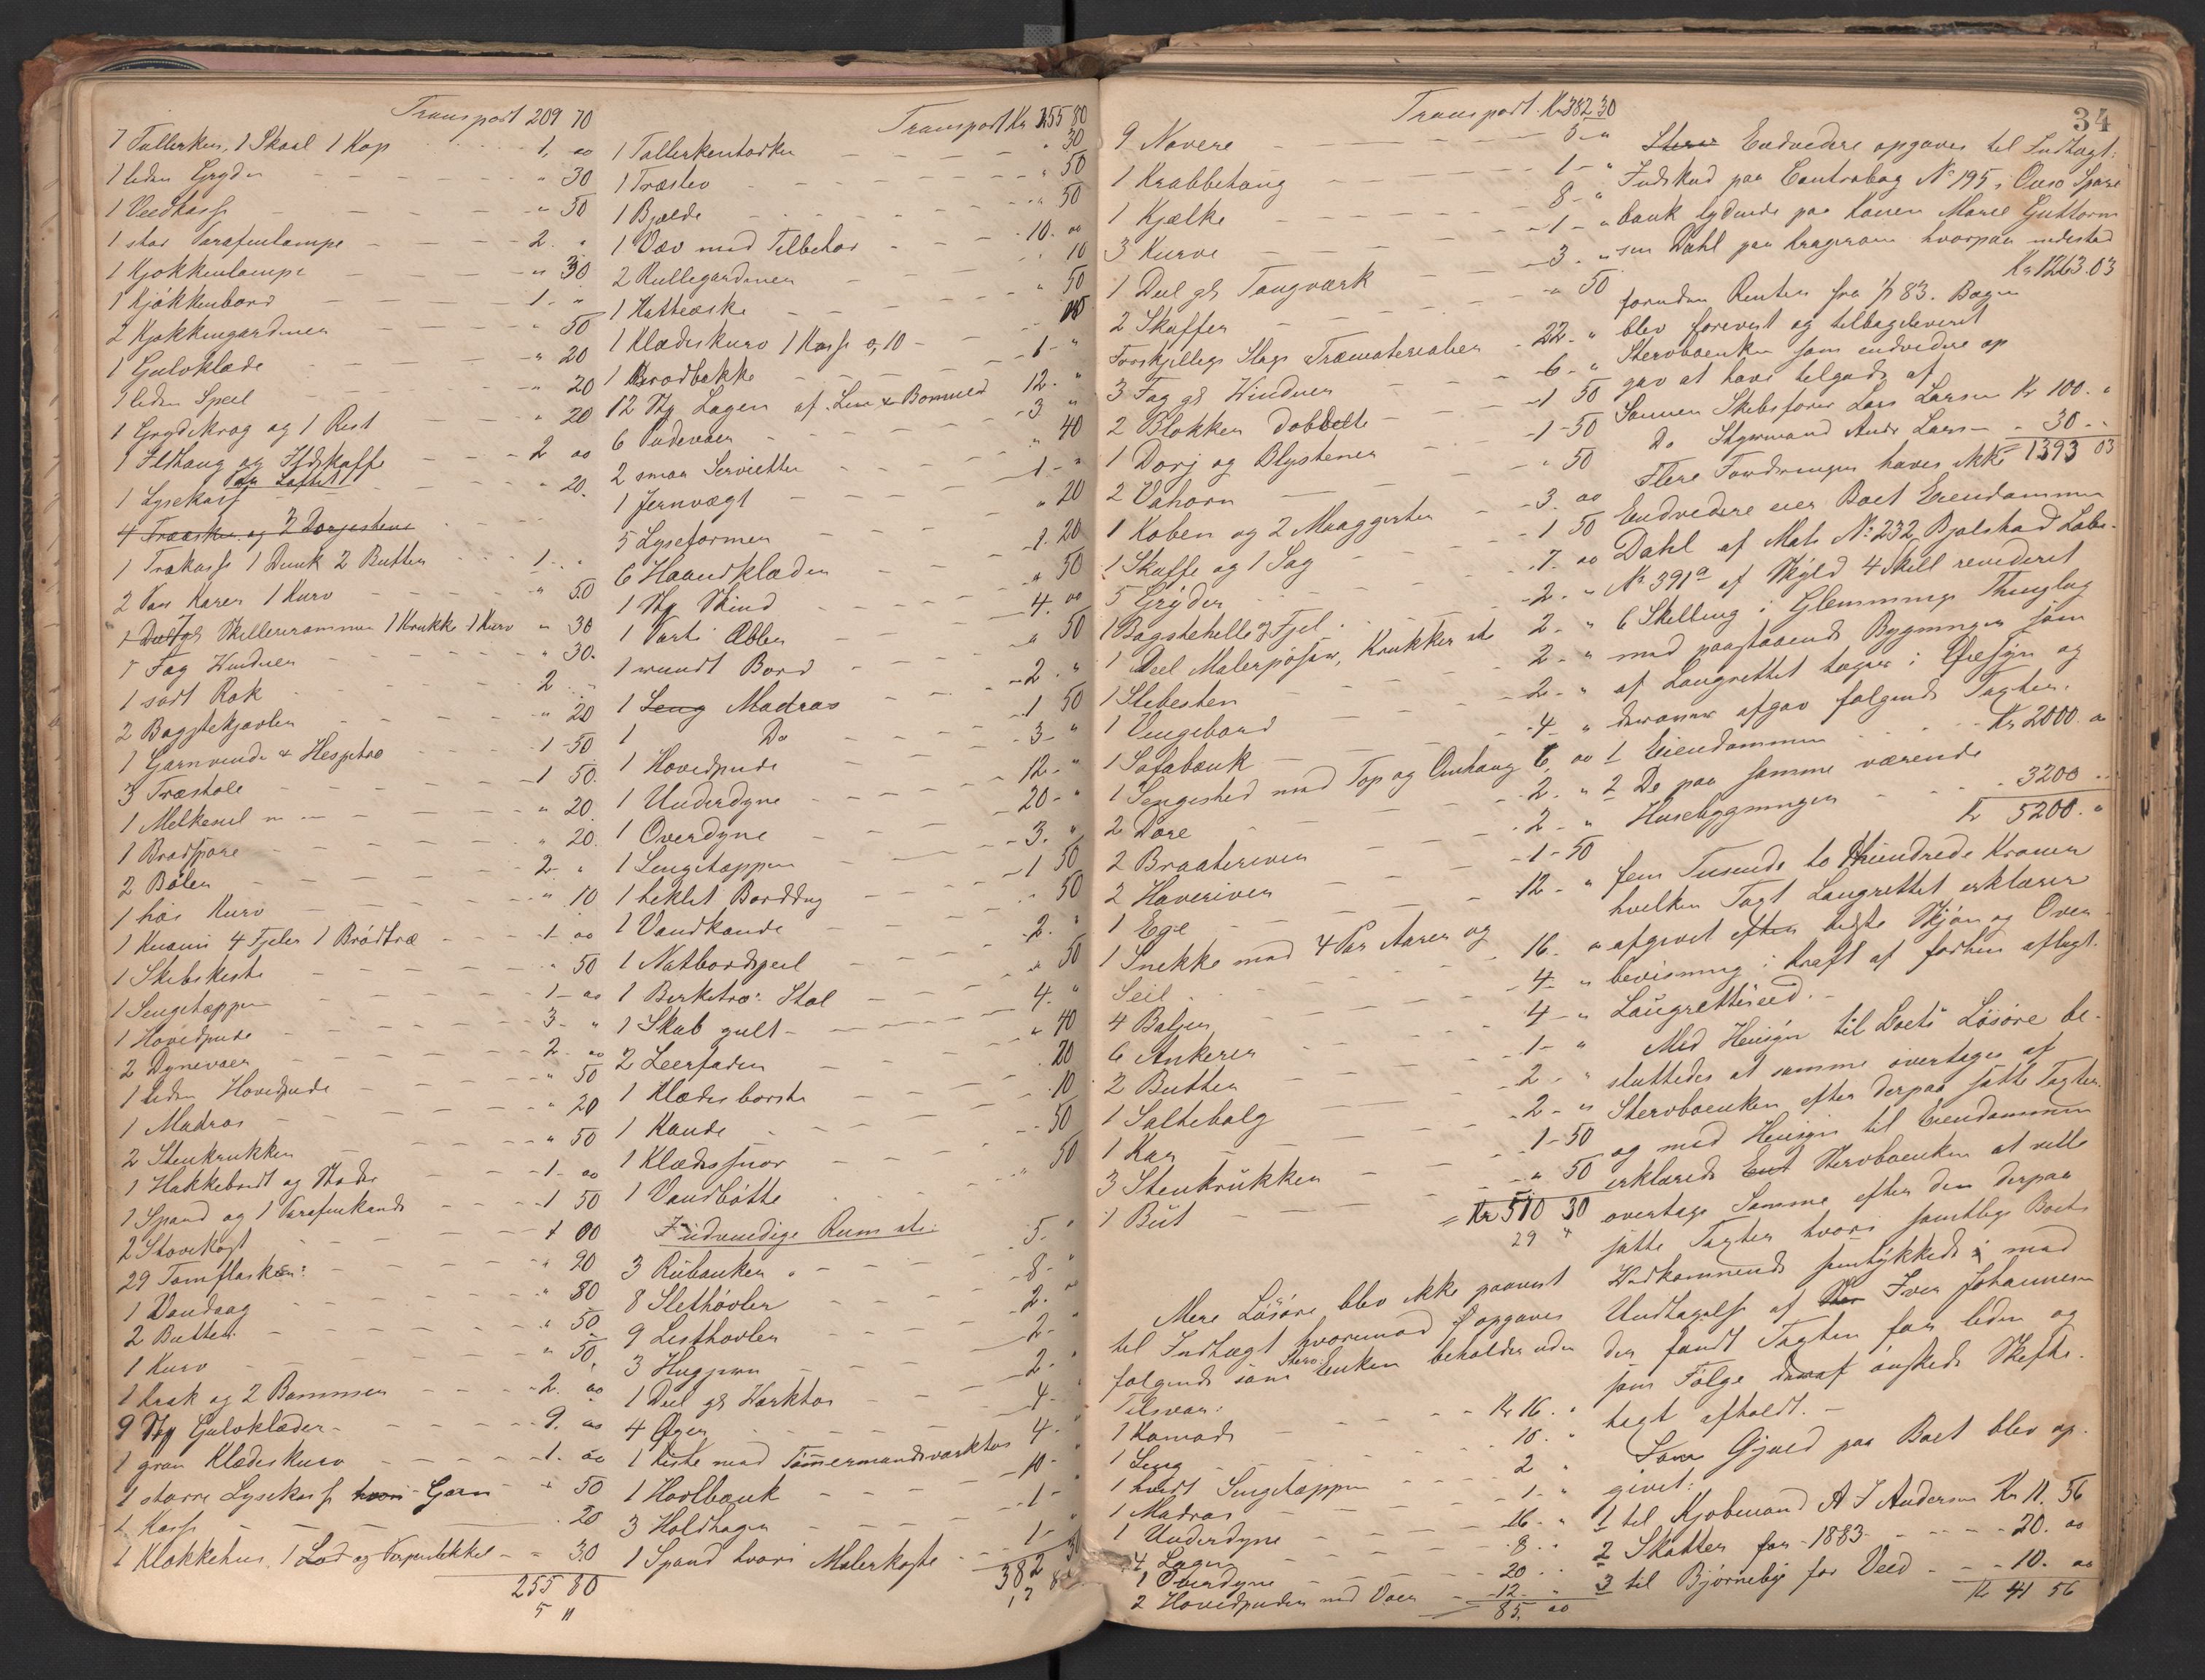 Transport 209 70
7 Tallerken, 1 Skaal 1 Kop 1, 00
1 liden Gryde " 30
1 Vedkasse " 50
1 stor Parafinlampe 2. "
1 Kjøkkenlampe " 30
1 Kjøkkenbord 1. "
2 Kjøkkengardiner " 50
1 Gulvklæde " 20
1 liden Speil " 20
1 Grydekrog og 1 Rist " 20
1 Ildtang og Ildskuffe 2 00
Paa Loftet
1 Lysekasse " 20.
4 Træsker og 2 Dorjestene
1 Trækasse 1 Dunk 2 Butter 1. "
2 Par Karer 1 Kurv " 50
1 Deel gl Skillerirammer 1 Krukke 1 Kurv " 30
1 Fag Vinduer " 30.
1 sort Rok 2 "
2 Baggtekjævler " 20
1 Garnvinde & Hespetræ 1 50
3 Træstole 1 50.
1 Melkesil " 20.
1 Brødspade " 20.
2 Bøler 2. "
1 høi Kurv " 10
1 Knæm 4 Fjeler 1 Brødtræ 1 00
1 Skibskiste " 50
1 Sengetæppe 1 00
1 Hovedpude 3. "
2 Dynevaer 2. 00
1 liden Hovedpude " 50
1 Madras " 20
2 Stenkrukker " 50
1 Hakkebret og Stødes 1. 00
1 Spand og 1 Parafinkande 1 50
2 Stovekost 1 00
29 Tomflasker: " 90
1 Vandaag " 80
2 Butter " 50
1 Kurv " 50
1 Krak og 2 Bommer 2. 00
9 Stk Gulvklæder 9. 00
1 grøn Klædeskurv 1. 00
1 større Lysekasse hvori Garn " 50
1 Kasse " 20
1 Klokkehus, 1 Lod og Perpentikkel " 30
255 80
5 "
Transport Kr 255 80
1 Tallerkentørke " 30
1 Træslev " 50
1 Bjælde " 50
1 Væv med Tilbehør 10. 00
2 Rullegardiner " 10
1 Hatteæske " 50
1 Klædeskurv 1 Kasse 0,10
1 Brødbakke 1 "
12 Stk Lagen af Lin & Bomuld 12. "
6 Pudevaer 3 "
2 smaa Servietter " 40
1 Jernvægt 1 "
5 Lyseformer " 20
6 Haandklæder 1. 20
1 Stk Skind " 50
1 Parti Æbler 4. 00
1 rundt Bord " 50
1 Seng Madras 2. "
1 Do 1 50
1 Hovedpude 3 "
1 Underdyne 12. "
1 Overdyne 20 "
1 Sengetæppe 3. "
1 heklet Borddug 1 50
1 Vandkande " 50
1 Natbordspeil 2. "
1 Birketræ: Stol " 50
1 Skab gult 4. "
2 Leerfader " 40
1 Klædesbørste 20
1 Kande 10
1 Klædessnor 50
1 Vandbøtte " 50
I udvendige Rum etc:
3 Rubanker 5. "
8 Sletthøvler 8 "
9 Listhøvler 2. 00
3 Hugjern 2 "
1 Deel gl Værktøi 2. "
4 Øxer 4 "
1 Kiste med Tømmermandsværktøi 4. "
1 Høvlbænk 10 "
3 Holdhager 1 "
1 Spand hvori Malerkoste 1 "
382 30
Transport Kr 382 30
34
9 Navere 5 "
1 Krabbetang 1 "
1 Kjælke 8 "
3 Kurve 1 "
1 Deel gl Tougværk 3. "
2 Skuffer " 50
Forskjellige Slags Træmaterialier 22 "
3 Fag gl Vinduer 6 "
2 Blokker dobbelte 1 50
1 Dorj og Blystener 1 50
2 Vahorn " 50
1 Koben og 2 Muggester 3. 00
1 Skuffe og 1 Sag 1 50
5 Gryder 7. 00
1 Bagstehelle & Fjel 2. "
1 Deel Malerpøser, Krukker etc 2. "
1 Slibesten 2. "
1 Vingebord 2. "
1 Sofabænk 4 "
1 Sengested med Top og Omhæng 6. 00
2 Døre 2. "
2 Braateriver 2. "
2 Haveriver 1 50
1 Ege 12. "
1 Snekke med 4 Par Aarer og
Seil 16. "
4 Baljer 4 "
6 Ankerer 4 "
2 Butter 1 "
1 Saltebalg 2. "
1 Kar 2 "
3 Stenkrukker 1 50
1 But " 50
= Kr 510 30
29 "
Mere Løsøre blev ikke paavist
til Indtægt hvorimod opgaves
følgende som Stervbenken beholder uden
Tilsvar:
1 Komode Kr 16. "
1 Seng 10. "
1 hvidt Sengetæppe 2 "
1 Madras 1. "
1 Underdyne 16. "
4 Lagen 8. "
1 Overdyne 20 "
2 Hovedpuder med Vaer 12. "
85. 00
Endvidere opgaves til Indtægt:
Indskud paa Contrabog No 195 i Onsø Spare
bank lydende paa Karen Marie Guttorm
sen Dahl paa Kragerøen hvorpaa indestod
Kr 1263.03
foruden Renter fra 1/1 83. Bogen
blev forevist og tilbageleveret
Stervboenken som endvidere op
gav at have tilgode af
Sønnen Skibsfører Lars Larsen Kr 100. "
Do Styrmand Ands Larsen " 30 "
1393 03
Flere Fordringer haves ikke
Endvidere eier Boet Eiendommen
Dahl af Matr No 232 Bjølstad Løbe-
No 391a af Skyld 4 Skill revideret
6 Skilling i Glemminge Thinglag
med paastaaende Bygninger som
af Laugrettet toges i Øiesyn og
derover afgav følgende Taxter.
1 Eiendommen Kr 2000. 00
2 De paa samme værende
Husebygninger 3200 "
Kr 5200. "
fem Tusende to Hundrede Kroner
hvilken Taxt Laugrettet erklærer
afgivet efter bedste Skjøn og Over
bevisning i Kraft af forhen aflagt
Laugrettesed.
Med Hensyn til Boets Løsøre be-
sluttedes at samme overtages af
Stervboenken efter derpaa satte Taxter
og med Hensyn til Eiendommen
erklærede Stervboenken at ville
overtage Samme efter den derpaa
satte Taxter hvori samtlige Boets
Vedkommende samtykkede med
Undtagelse af Iver Johannesen
der fandt Taxten for liden og
som Følge deraf ønskede Skifte-
taxt afholdt.
Som Gjæld paa Boet blev op-
givet:
1 til Kjøbmand A J Andersen Kr 11. 56
2 Skatter for 1883 20. 00
3 til Bjørneby for Ved 10. 00
Kr 41 56